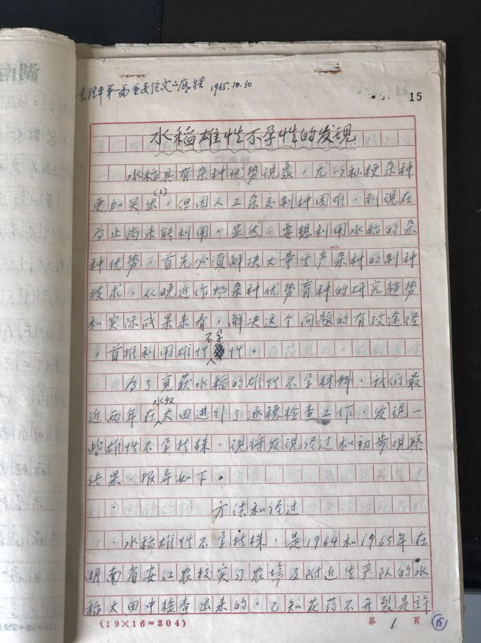 袁隆平第一篇重要论文之底稿 1965.10.30
15
水稻雄性不孕性的发现
水稻具有杂种优势现象，尤以籼粳杂种
更加突出(1)，但因人工杂交制种困难，到现在
为止尚未能利用。显然，要想利用水稻的杂
种优势，首先必须解决大量生产杂种的制种
技术，从晚近作物杂种优势育种的研究趋势
和实际成果来看，解决这个问题的有效途径
，首推利用雄性不孕性。
为了觅获水稻的雄性不孕材料，我们最
近两年在水稻大田进行了逐穗检查工作，发现一
些雄性不孕植株，现将发现经过和初步观察
结果，报导如下。
方法和经过
水稻雄性不孕植株，是1964和1965年在
湖南省安江农校实习农场及附近生产队的水
稻大田中检查出来的。已知花药不开裂是许
(19×16=304)
第 1 页
15
湖南